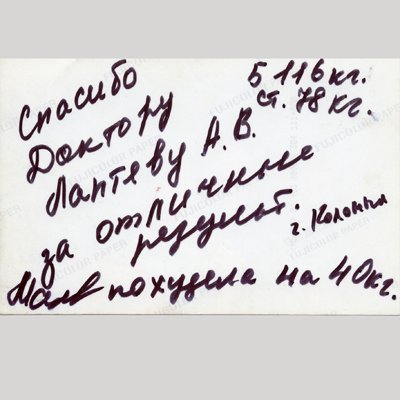 Спасибо
Доктору
Лаптеву А. В.
за отличные
результ.
Б 116 кг.
ст. 78 кг.
г. Коломна
похудела на 40 кг.
FUJICOLOR PAPER